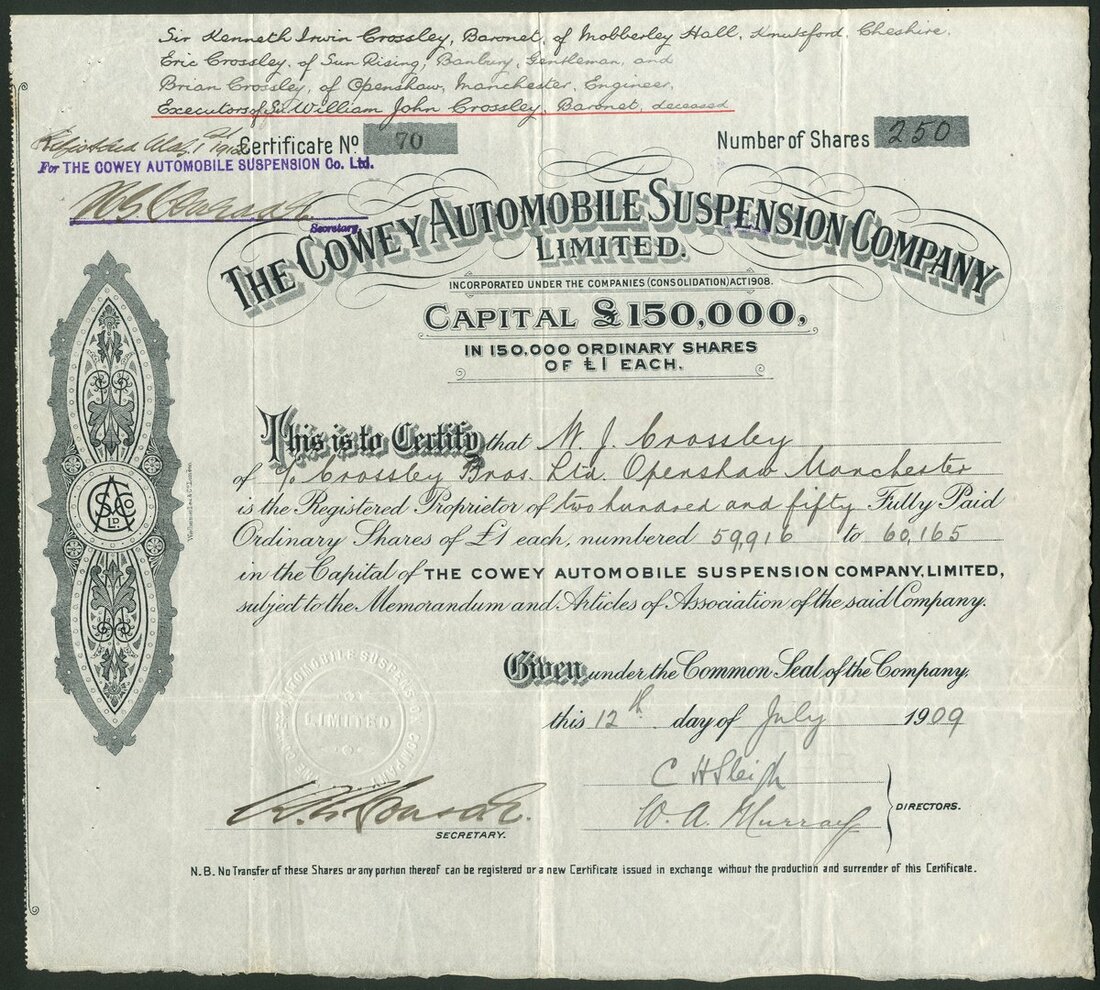 Sir Kenneth Irwin Crossley, Baronet, of Mobberley Hall, Knutsford, Cheshire,
Eric Crossley, of Sun Rising, Banbury, Gentleman, and
Brian Crossley, of Openshaw, Manchester, Engineer,
Executors of Sir William John Crossley, Baronet, deceased
Certificate No 70
Number of Shares 250
For THE COWEY AUTOMOBILE SUSPENSION Co. Ltd.
Secretary.
THE COWEY AUTOMOBILE SUSPENSION COMPANY
LIMITED.
INCORPORATED UNDER THE COMPANIES (CONSOLIDATION) ACT 1908.
CAPITAL £150,000,
IN 150,000 ORDINARY SHARES
OF £1 EACH.
This is to Certify that W. J. Crossley
of c/o Crossley Bros. Ltd. Openshaw Manchester
is the Registered Proprietor of two hundred and fifty Fully Paid
Ordinary Shares of £1 each, numbered 59,916 to 60,165
in the Capital of THE COWEY AUTOMOBILE SUSPENSION COMPANY, LIMITED,
subject to the Memorandum and Articles of Association of the said Company.
Given under the Common Seal of the Company,
this 12th day of July 1909
LIMITED
C H Sleigh
W. A. Murray
DIRECTORS.
SECRETARY.
N.B. No Transfer of these Shares or any portion thereof can be registered or a new Certificate issued in exchange without the production and surrender of this Certificate.